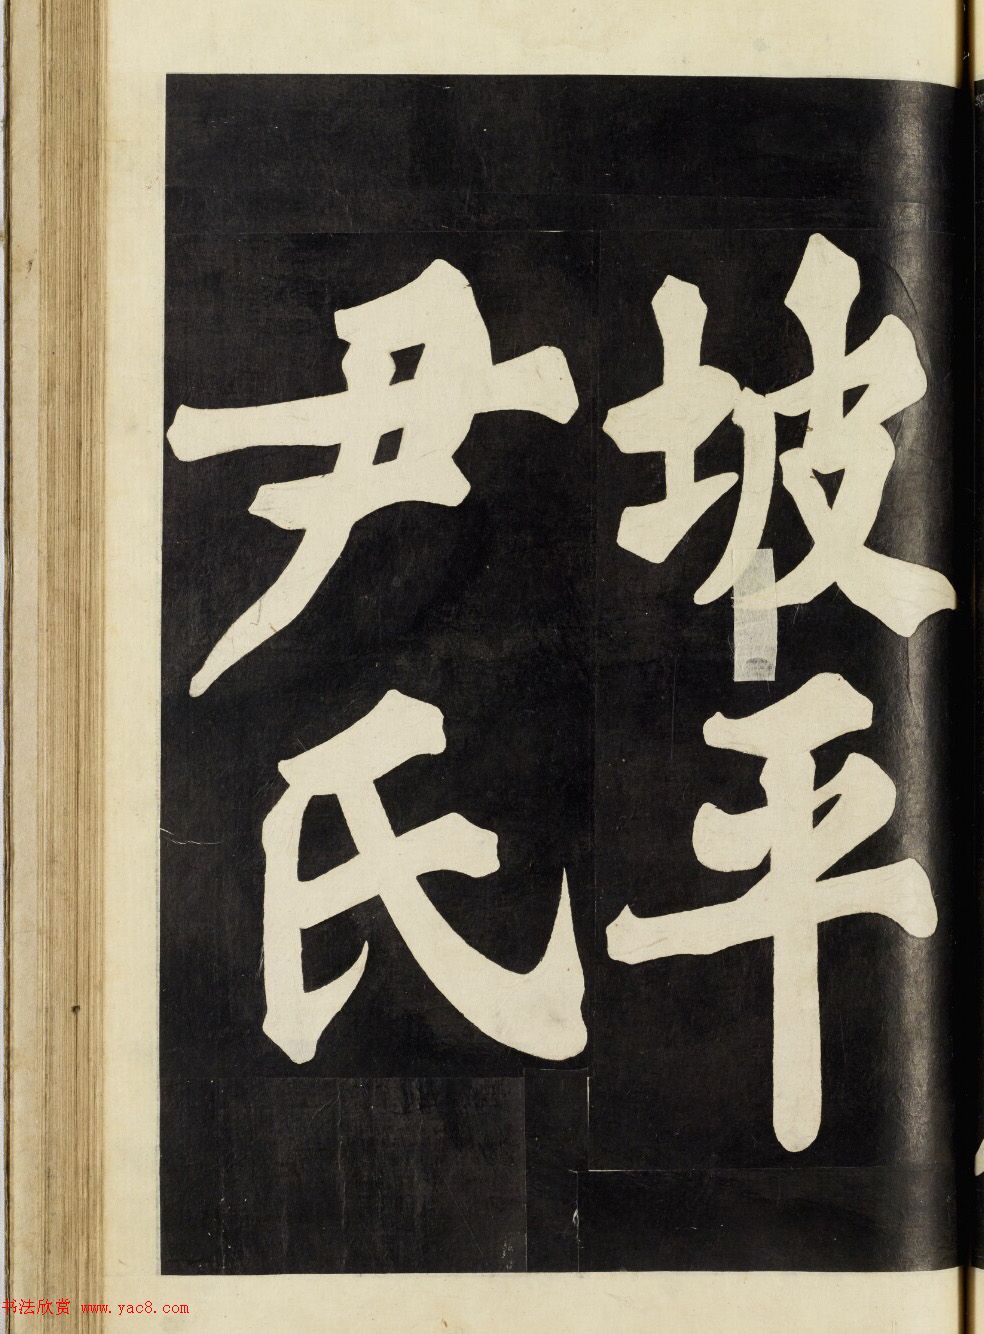 坡平
尹氏
书法欣赏 www.yac8.com